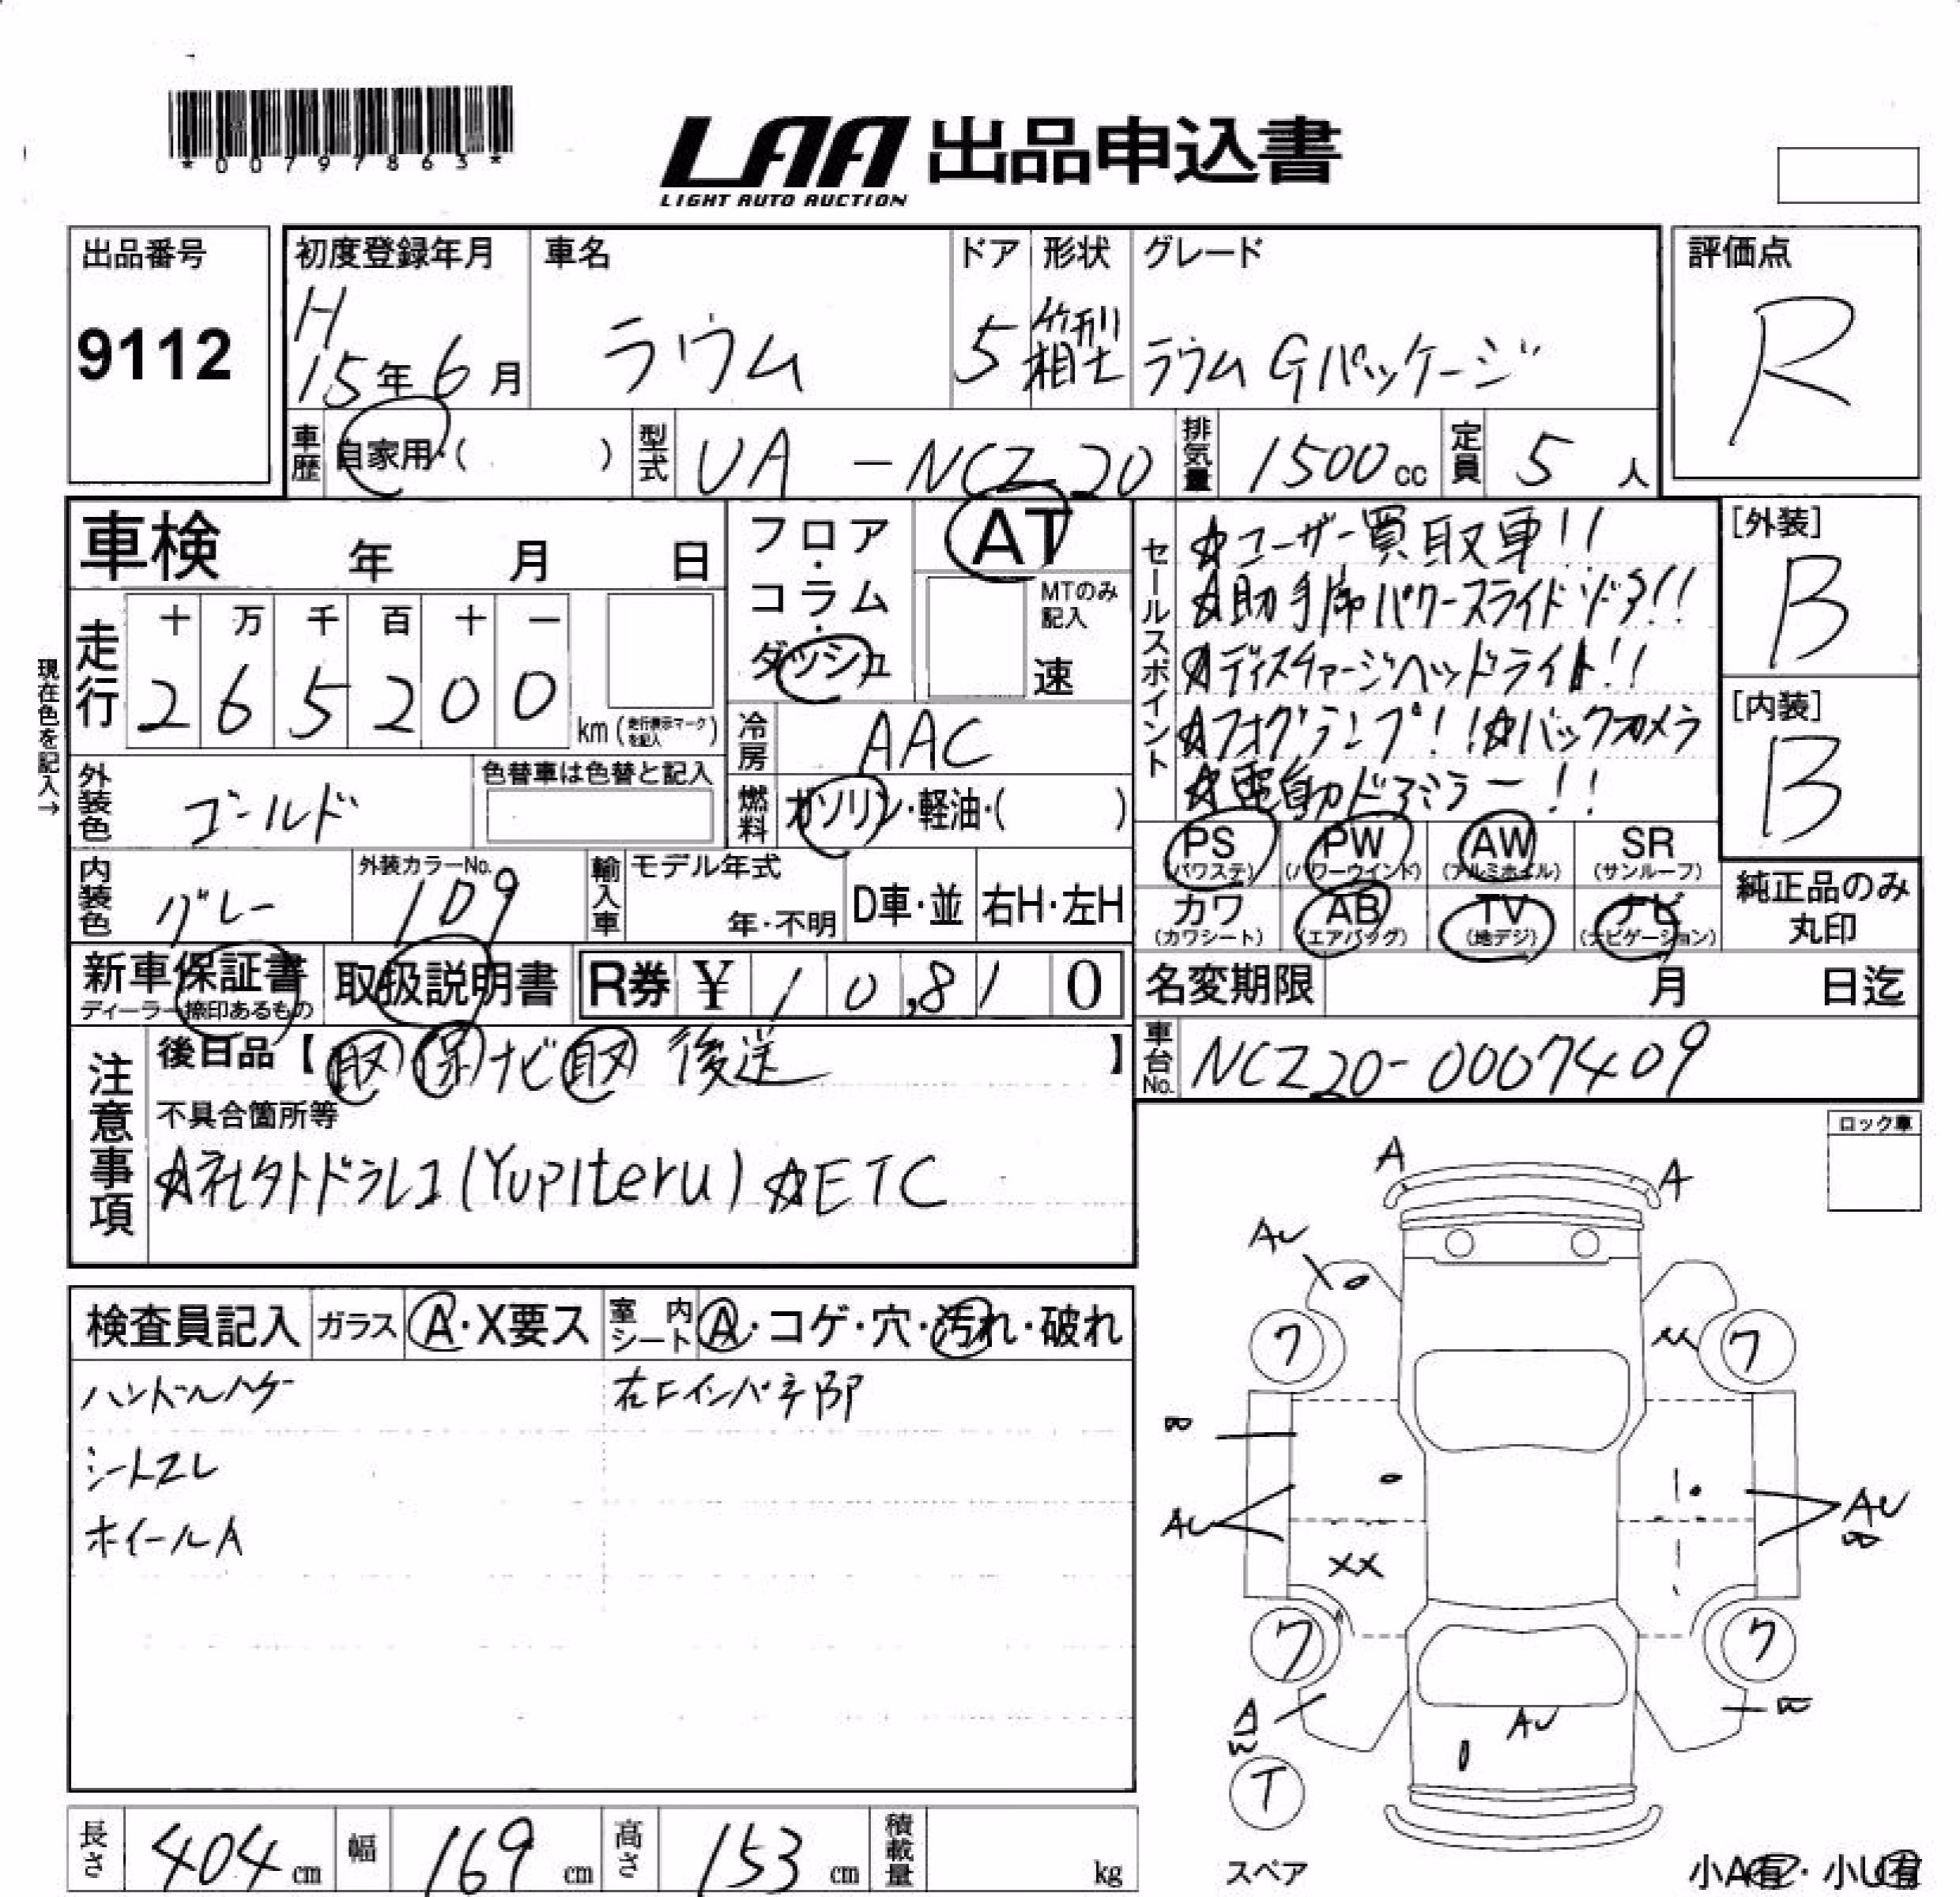 *00797863*
LAA 出品申込書
LIGHT AUTO AUCTION
出品番号
9112
初度登録年月
H
15年6月
車名
ラウム
ドア
5
形状
箱型
グレード
ラウム Gパッケージ
評価点
R
車歴
自家用・( )
型式
UA - NCZ20
排気量
1500cc
定員
5人
車検 年 月 日
フロア・コラム・ダッシュ
AT
MTのみ記入
速
セールスポイント
☆ユーザー買取車!!
☆助手席パワースライドドア!!
☆ディスチャージヘッドライト!!
☆フォグランプ!!☆バックカメラ
☆電動ドアミラー!!
[外装]
B
[内装]
B
現在色を記入→
走行
十 万 千 百 十 一
2 6 5 2 0 0
km (走行表示マークを記入)
冷房
AAC
外装色
ゴールド
色替車は色替と記入
燃料
ガソリン・軽油・( )
PS (パワステ)
PW (パワーウインド)
AW (アルミホイル)
SR (サンルーフ)
カワ (カワシート)
AB (エアバッグ)
TV (地デジ)
ナビ (ナビゲーション)
純正品のみ丸印
内装色
グレー
外装カラーNo.
1D9
輸入車
モデル年式
年・不明
D車・並
右H・左H
新車保証書
ディーラー捺印あるもの
取扱説明書
R券 ¥ 10,810
名変期限 月 日迄
注意事項
後日品【取 保 ナビ取 後送】
車台No.
NCZ20-0007409
不具合箇所等
☆社外ドラレコ(Yupiteru) ☆ETC
ロック車
検査員記入
ガラス
A・X要ス
室内シート
A・コゲ・穴・汚れ・破れ
ハンドルハゲ
右Fインパネ部
シートスレ
ホイールA
A
A
AU
ワ
ワ
AU
AU
XX
ワ
ワ
A
AU
T
スペア
小A有・小U有
長さ
404cm
幅
169cm
高さ
153cm
積載量
kg